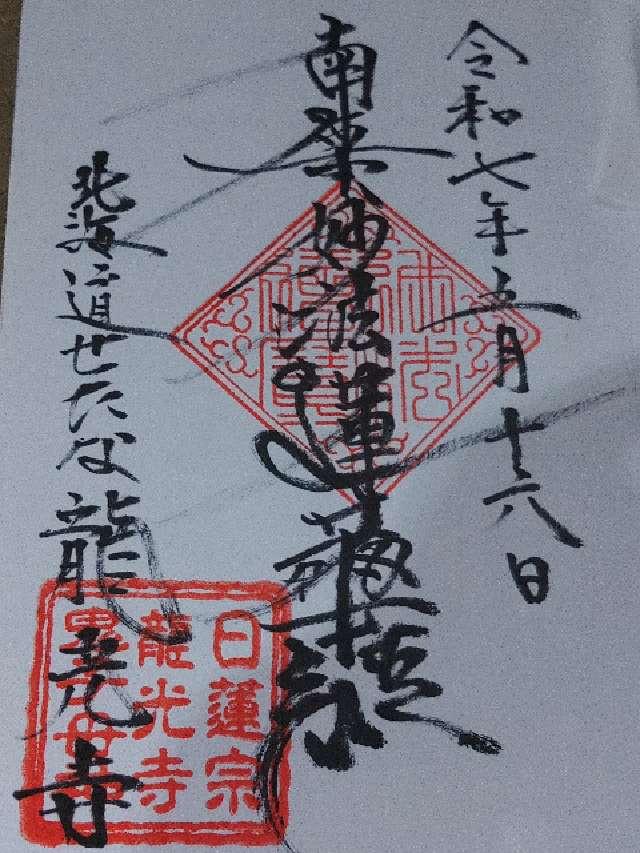 令和七年五月十六日
南無妙法蓮華経
北海道せたな龍光寺
日蓮宗
龍光寺